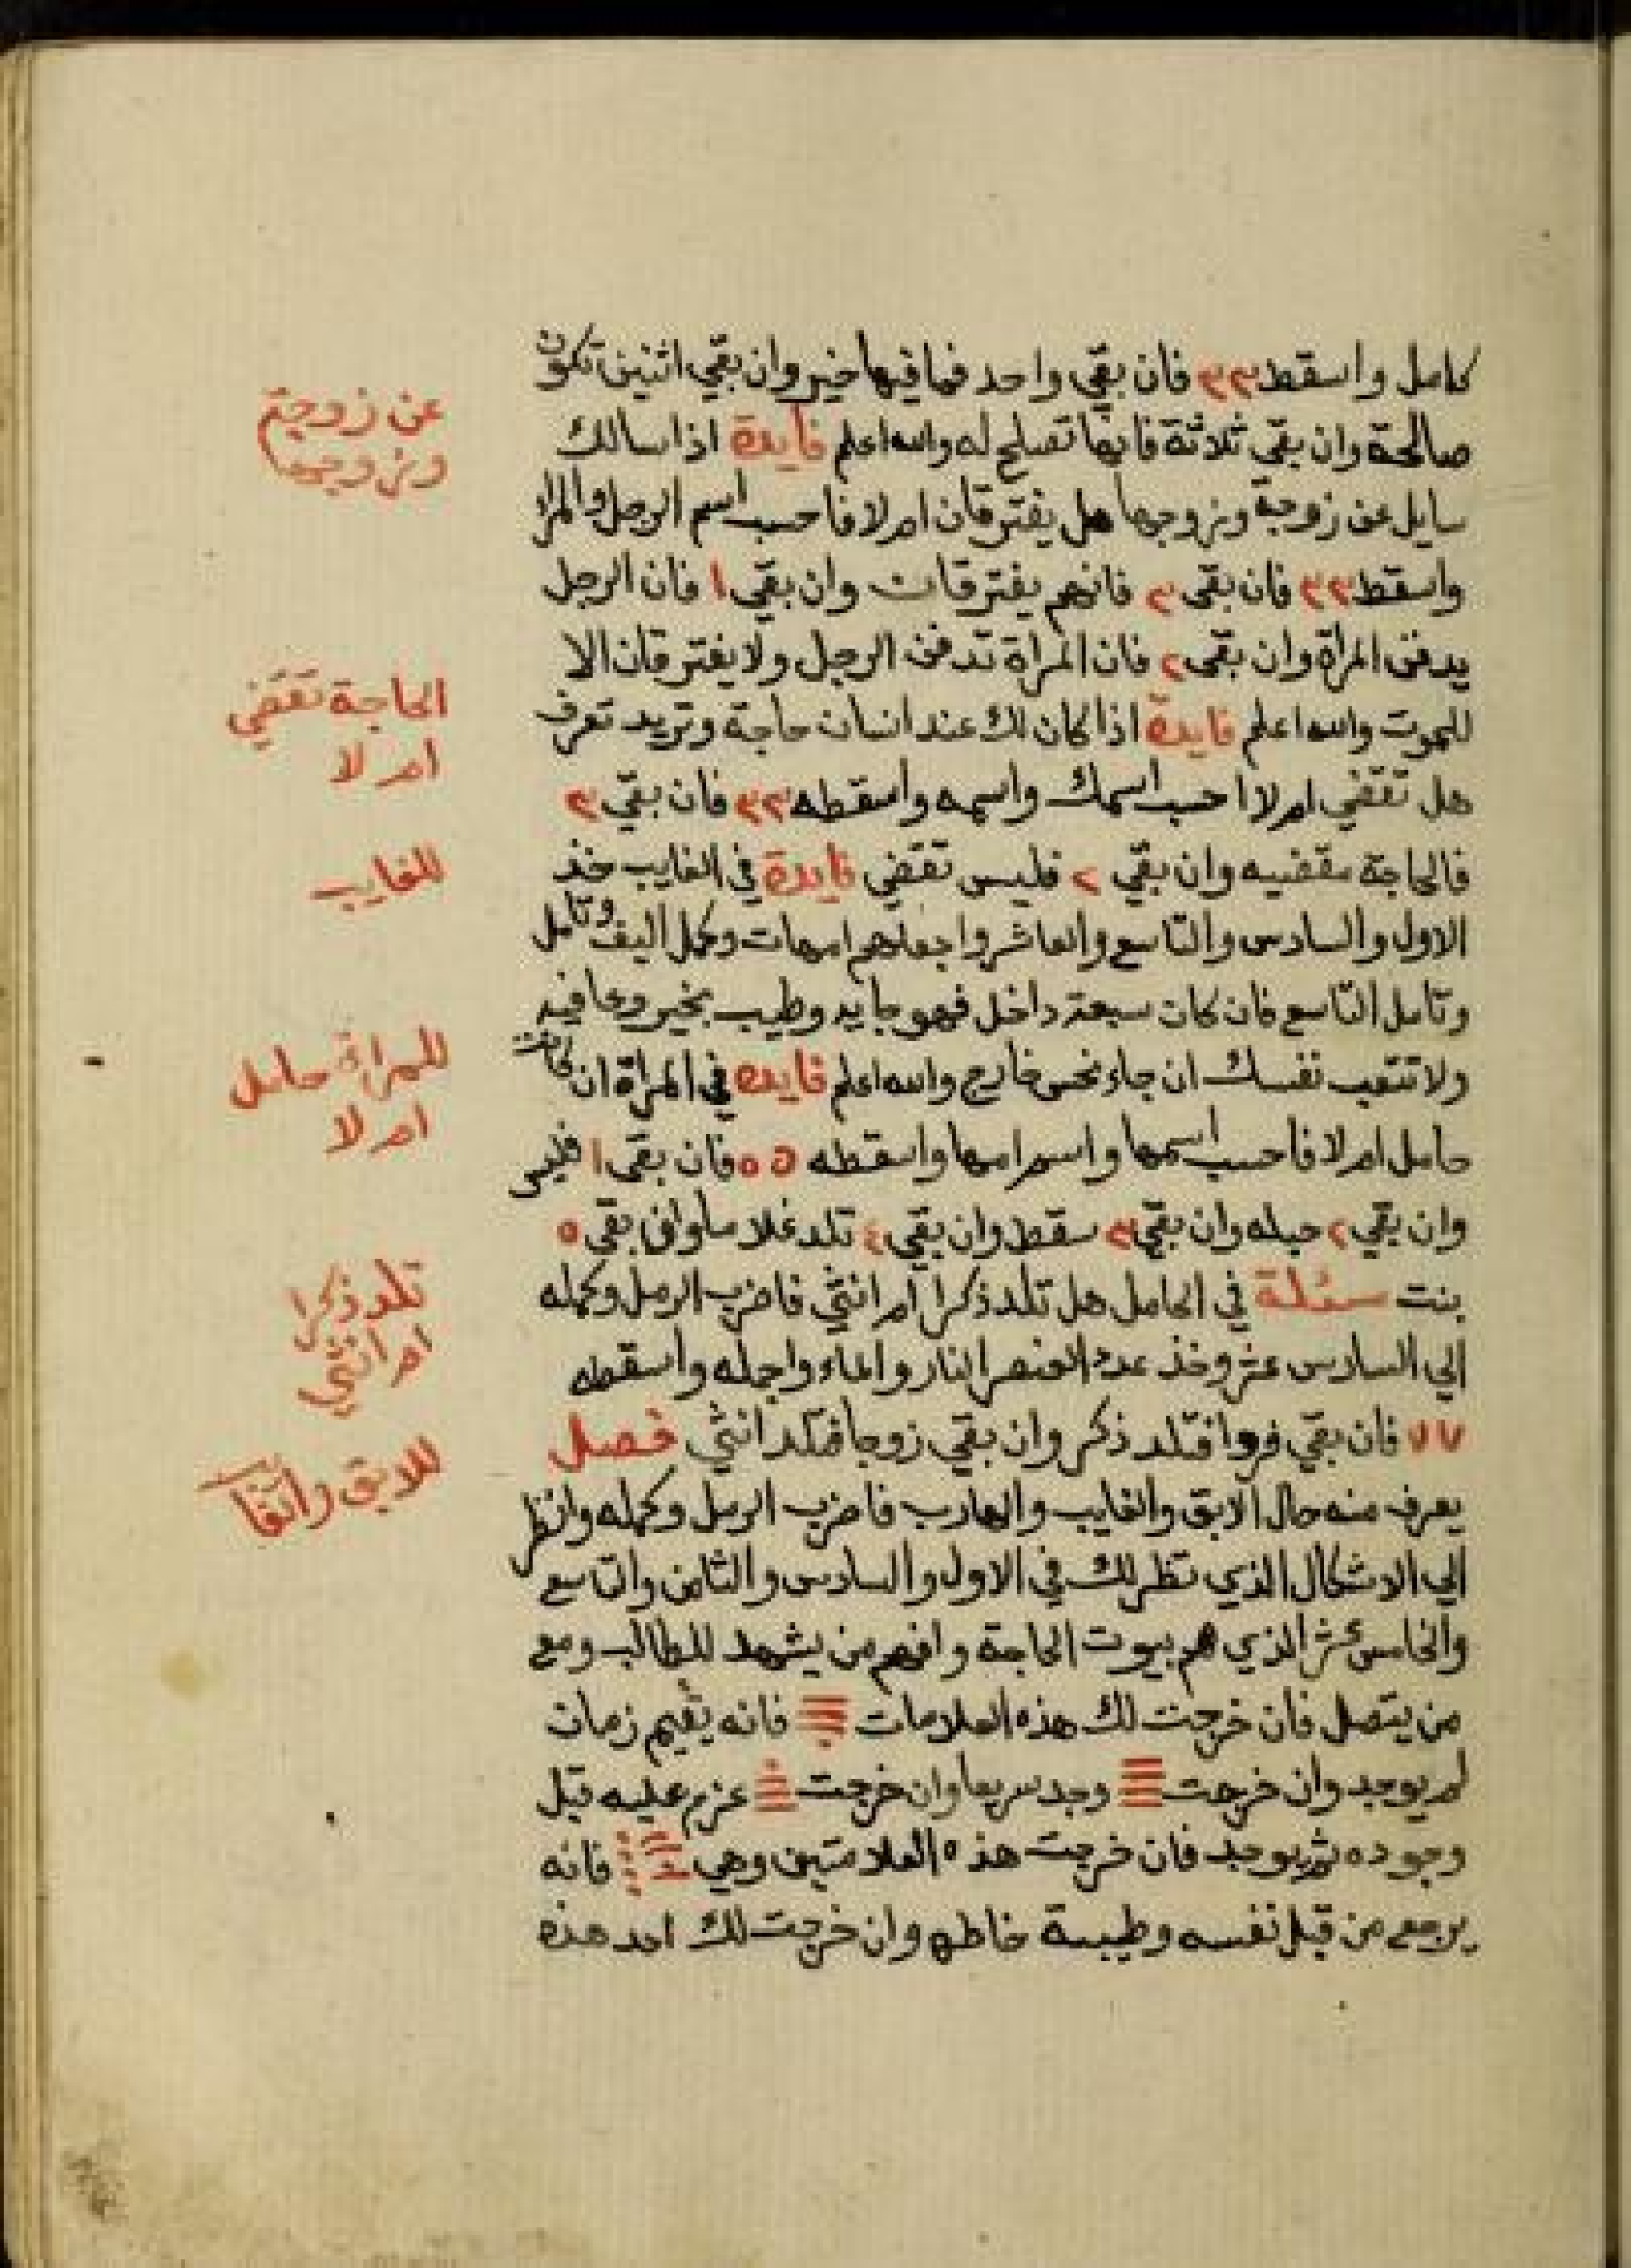 كامل واسقط ٣٣ فان بقي واحد فما فيها خير وان بقي اثنين تكون
صالحة وان بقي ثلاثة فانها تصلح له والله اعلم فايدة اذا سالك
سايل عن زوجة وزوجها هل يفترقان ام لا فاحسب اسم الرجل والمراة
واسقط ٣٣ فان بقى ٣ فانهم يفترقان وان بقي ١ فان الرجل
يدفن المراة وان بقى ٢ فان المراة تدفن الرجل ولا يفترقان الا
للموت والله اعلم فايدة اذا كان لك عند انسان حاجة وتريد تعرف
هل تقضي ام لا احسب اسمك واسمه واسقطه ٣٣ فان بقي ٣
فالحاجة مقضيه وان بقي ٢ فليس تقضي فايدة في الغايب خذ
الاول والسادس والتاسع والعاشر واجعلهم امهات وكمل اليف وتامل
وتامل التاسع فان كان سبعة داخل فهو جايد وطيب بخير وعافيه
ولا تتعب نفسك ان جاء نحس خارج والله اعلم فايده في المراة ان كانت
حامل ام لا فاحسب اسمها واسم امها واسقطه ٥ ٥ فان بقى ١ فليس
وان بقي ٢ حبله وان بقي ٣ سقط وان بقي ٤ تلد غلاما وان بقي ٥
بنت سئلة في الحامل هل تلد ذكرا ام انثي فاضرب الرمل وكمله
الي السادس عشر وخذ عدد العنصر النار والماء واجمله واسقطه
٧٧ فان بقي فردا فتلد ذكر وان بقي زوجا فتلد انثي فصل
يعرف منه حال الابق والغايب والهارب فاضرب الرمل وكمله وانظر
الي الاشكال الذي تظر لك في الاول والسادس والثامن والتاسع
والخامس عشر الذي هم بيوت الحاجة وافهم من يشهد للطالب ومع
من يتصل فان خرجت لك هذه العلامات فانه يقيم زمان
لم يوجد وان خرجت وجد سريعا وان خرجت عزم عليه قبل
وجوده ثم يوجد فان خرجت هذه العلامتين وهي فانه
يرجع من قبل نفسه وطيبة خاطره وان خرجت لك احد هذه
عن زوجة
وزوجها
الحاجة تقضي
ام لا
للغايب
للمراة حامل
ام لا
تلد ذكرا
ام انثي
للابق